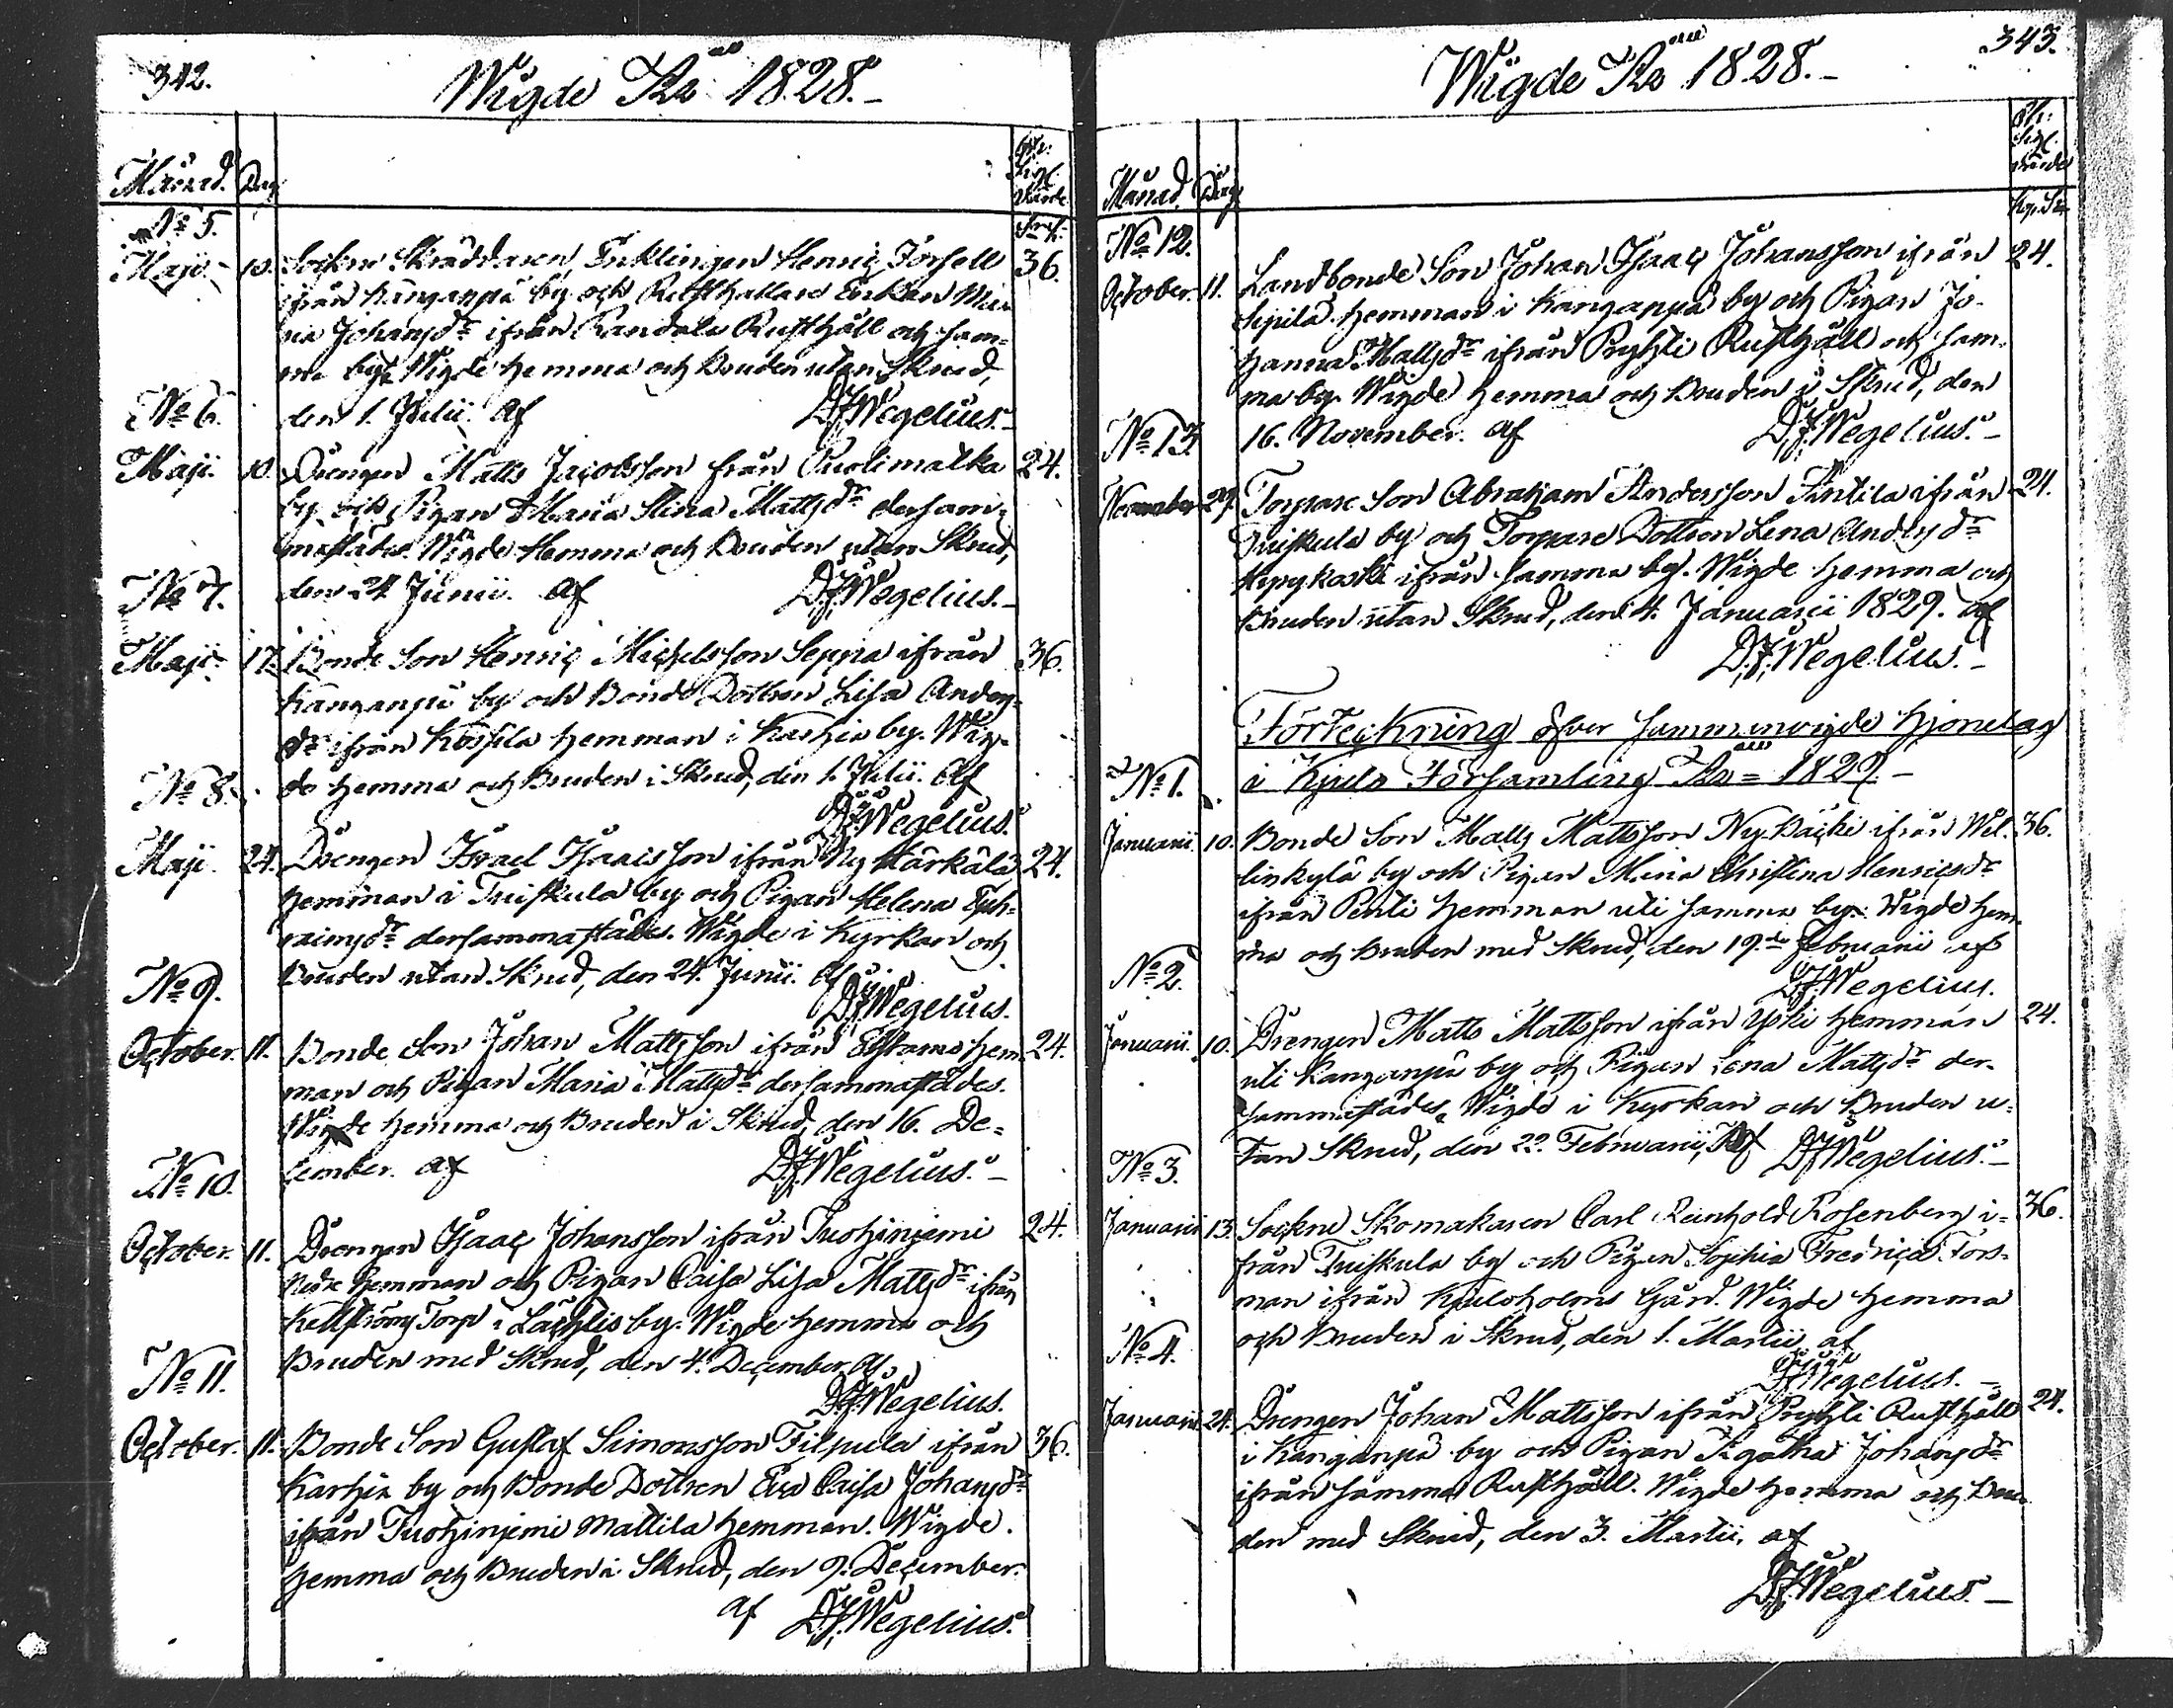 342.
Wigde Åro 1828.-
Månad. Dag
Sigl.
Värde
No 5.
Maji. 10. Sockne Skräddaren, Enklingen Henric Forsell 36.
ifrån Kanganpä by och Rusthållare Enkan
Johansdr ifrån Randala Rusthåll och sam=
ma by. Wigde hemma och Bruden utan Skrud,
No 6. den 1. Julii. af D.J.Wegelius.-
Maji. 10. Drengen Matts Jacobsson från Puolimatka 24.
by och Pigan Maria Stina Mattsdr dersam=
mastädes. Wigde Hemma och Bruden utan Skrud,
No 7. den 24 Junii. af D.J.Wegelius.-
Maji. 17. Bonde Son Henric Michelsson Seppä ifrån 36.
Kanganpä by och Bonde Dottren Lisa Anders=
dr ifrån Kossila hemman i Karhia by. Wig=
No 8. de hemma och Bruden i Skrud, den 1. Julii. af
D.J.Wegelius.
Maji 24. Drengen Israel Isaacsson ifrån Ny Härkälä 24.
hemman i Tuiskula by och Pigan Helena Eph=
raimsdr dersammastädes. Wigde i Kyrkan och
No 9. Bruden utan Skrud, den 24. Junii. af
D.J.Wegelius.
October. 11. Bonde Son Johan Mattsson ifrån hem= 24.
man och Pigan Maria Mattsdr dersammastädes.
Wigde hemma och Bruden i Skrud, den 16. De=
No 10. cember. af D.J.Wegelius.-
October. 11. Drengen Isaac Johansson ifrån Tuohiniemi 24.
Nedre hemman och Pigan Caisa Lisa Mattsdr ifrån
Kellströms Torp i Lächtis by. Wigde hemma och
No 11. Bruden med Skrud, den 4. December. af
D.J.Wegelius.
October. 11. Bonde Son Gustaf Simonsson Filpula ifrån 36.
Karhia by och Bonde Dottren Eva Caisa Johansdr
ifrån Tuohiniemi Mattila hemman. Wigde
hemma och Bruden i Skrud, den 9. December.
af D.J.Wegelius.
343.
Wigde Åro 1828.-
Månad. Dag
Sigl.
värde
No 12.
October. 11. Landbonde Son Johan Isaac Johansson ifrån 24.
Sepilä hemman i Kanganpä by och Pigan Jo=
hanna Mattsdr ifrån Pryhti Rusthåll och sam=
ma by. Wigde hemma och Bruden i Skrud, den
No 13. 16. November. af D.J.Wegelius.-
November 29. Torpare Son Abraham Andersson Tintila ifrån 24.
Tuiskula by och Torpare Dottren Lena Andersdr
ifrån samma by. Wigde hemma och
Bruden utan Skrud, den 4. Januarii 1829. af
D.J.Wegelius.-
Förteckning öfver sammanvigde Hjonelag
No 1. i Kjulo Församling Åro 1829.-
Januarii. 10. Bonde Son Matts Mattsson Ny Backi ifrån Wil= 36.
linkylä by och Pigan Maria Christina Henricsdr
ifrån Penti hemman uti samma by. Wigde hem=
ma och Bruden med Skrud, den 19.de Februarii af
No 2. D.J.Wegelius.
Januarii. 10. Drengen Matts Mattsson ifrån Yski hemman 24.
uti Kanganpä by och Pigan Lena Mattsdr der=
sammastädes. Wigde i Kyrkan och Bruden u=
tan Skrud, den 22. Februarii, af D.J.Wegelius.-
No 3.
Januarii 13. Sockne Skomakaren Carl Reinhold Rosenberg i= 36.
från Tuiskula by och Pigan Sophia Fredrica Fors=
man ifrån Kjuloholms Gård. Wigde hemma
No 4. och Bruden i Skrud, den 1. Martii af
D.J.Wegelius.-
Januarii 24. Drengen Johan Mattsson ifrån Pryhti Rusthåll 24.
i Kanganpä by och Pigan Agatha Johansdr
ifrån samma Rusthåll. Wigde hemma och Bru=
den med Skrud, den 3. Martii. af
D.J.Wegelius.-